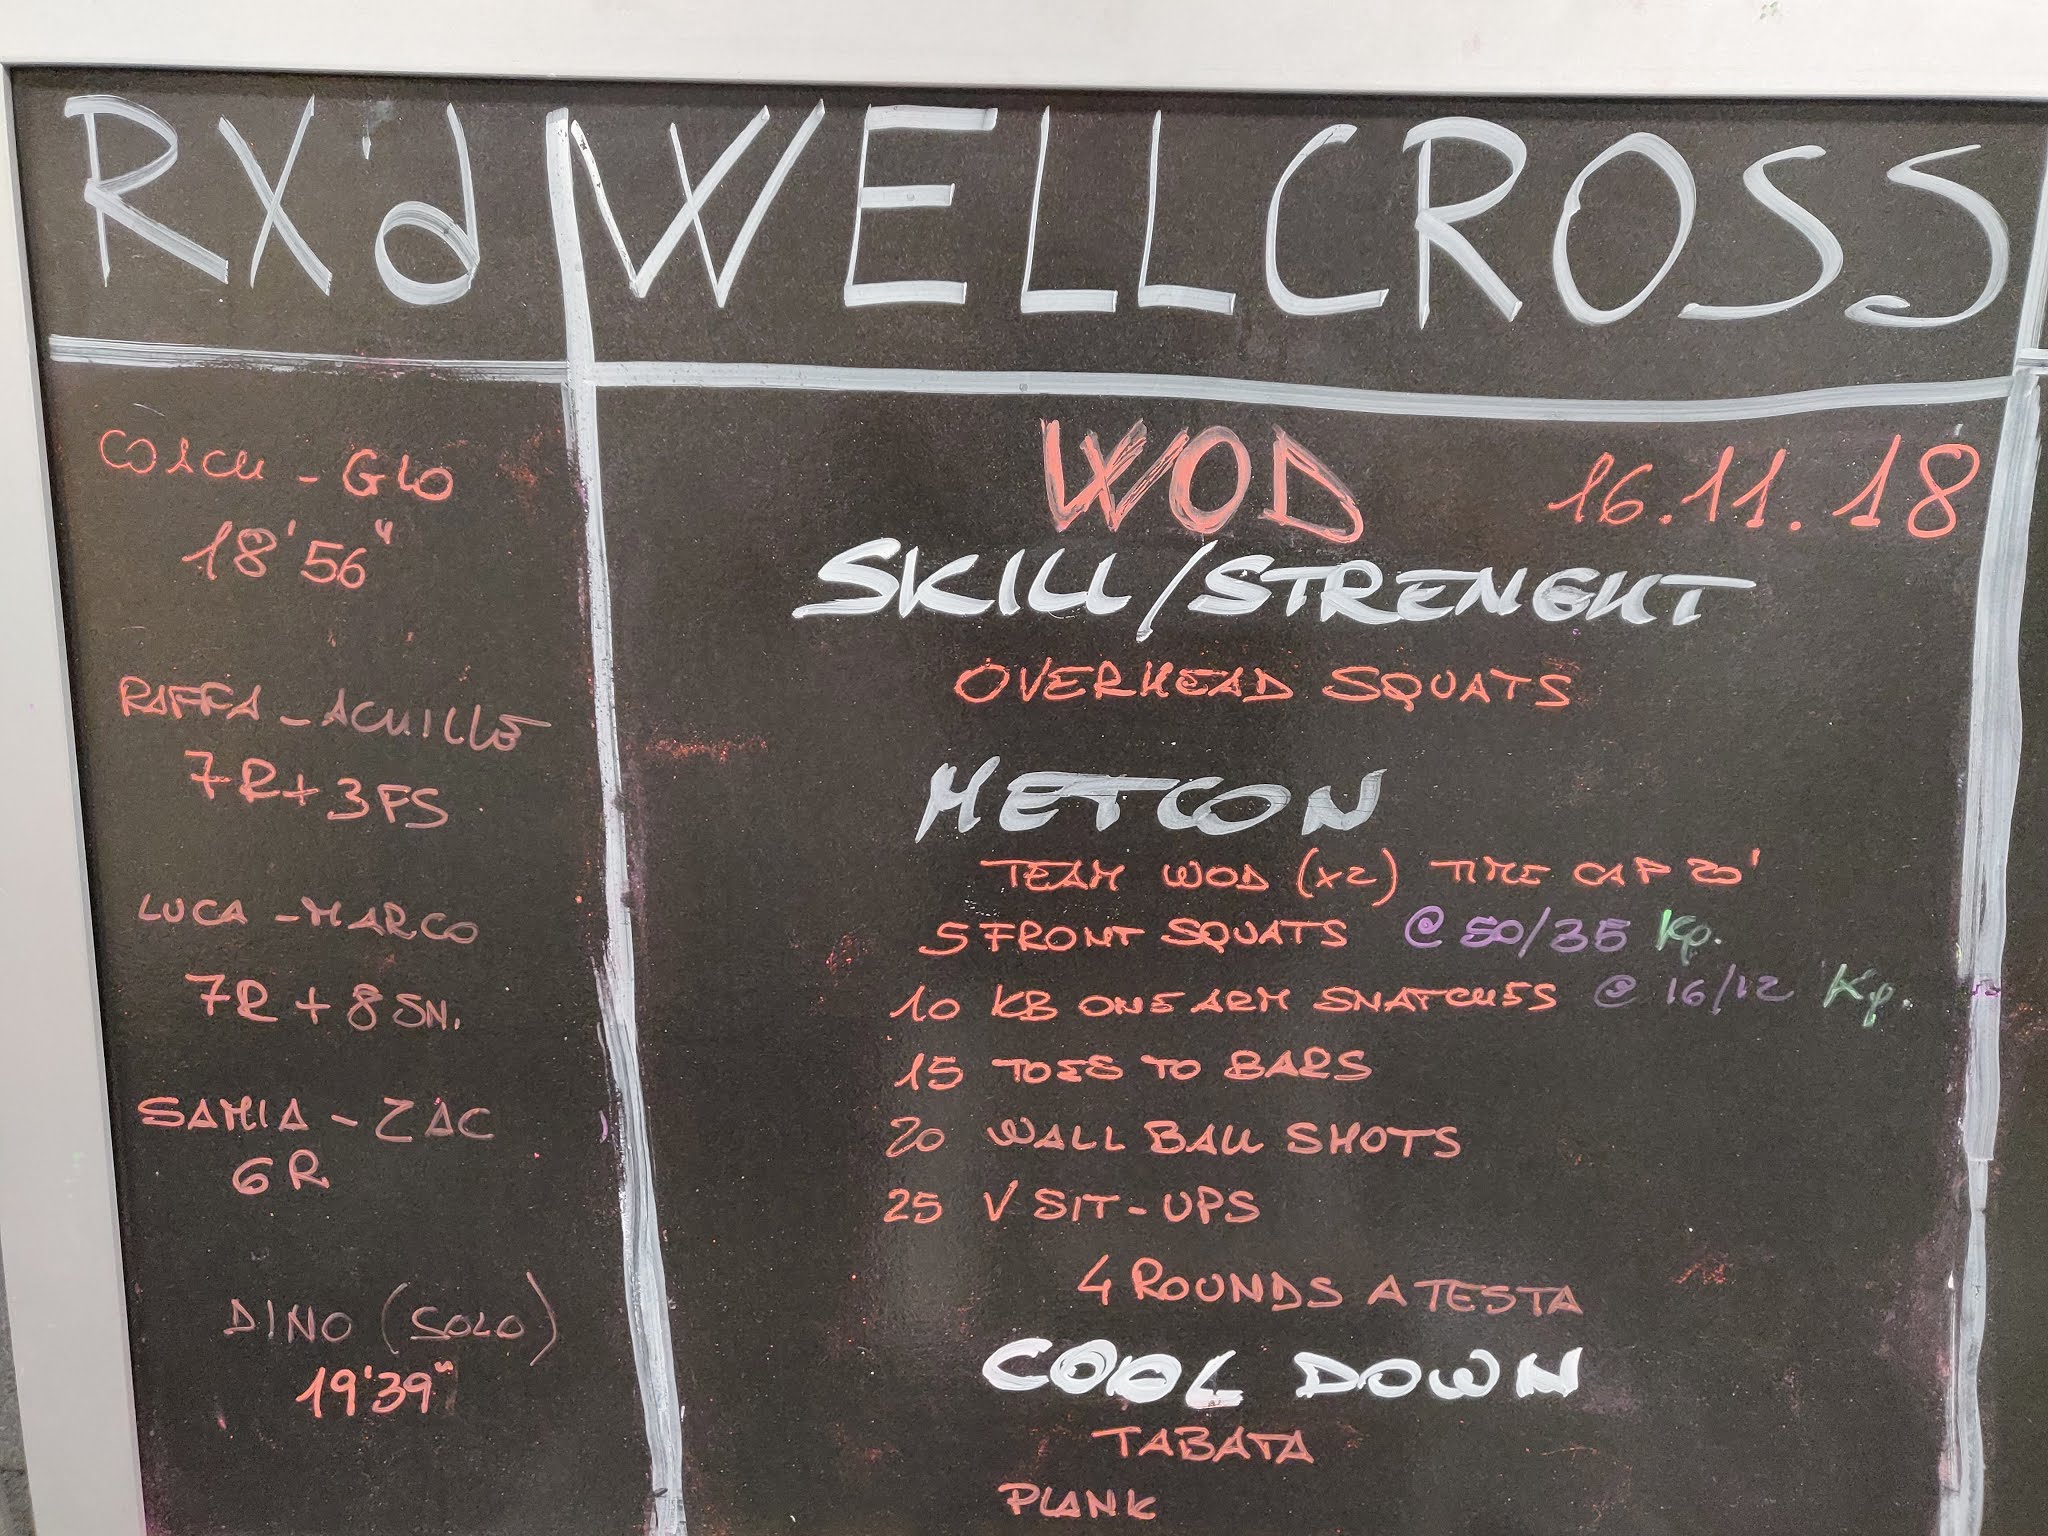 RX'd
COACH - GIO
18'56"
RAFFA - ACHILLE
7R + 3FS
LUCA - MARCO
7R + 8 SN.
SAMIA - ZAC
6R
DINO (SOLO)
19'39"
WELLCROSS
WOD 16.11.18
SKILL/STRENGHT
OVERHEAD SQUATS
METCON
TEAM WOD (x2) TIME CAP 20'
5 FRONT SQUATS @ 50/35 Kg.
10 KB ONE ARM SNATCHES @ 16/12 Kg.
15 TOES TO BARS
20 WALL BALL SHOTS
25 V SIT-UPS
4 ROUNDS A TESTA
COOL DOWN
TABATA
PLANK